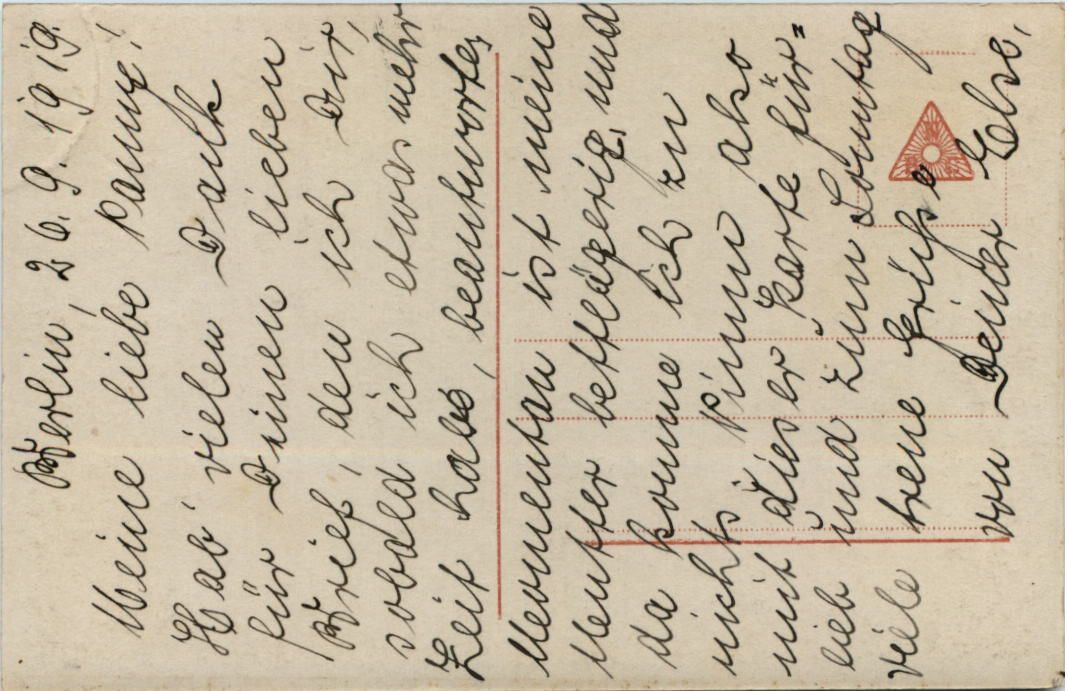 Berlin, 26. 9. 1919.
Meine liebe Nanny!
Hab' vielen Dank
für Deinen lieben
Brief, den ich Dir,
sobald ich etwas mehr
Zeit habe, beantworte.
Momentan ist meine
Mutter bettlägerig, und
da komme ich zu
nichts. Nimm also
mit dieser Karte für=
lieb und zum Sonntag
viele treue Grüsse
von Deiner Else.